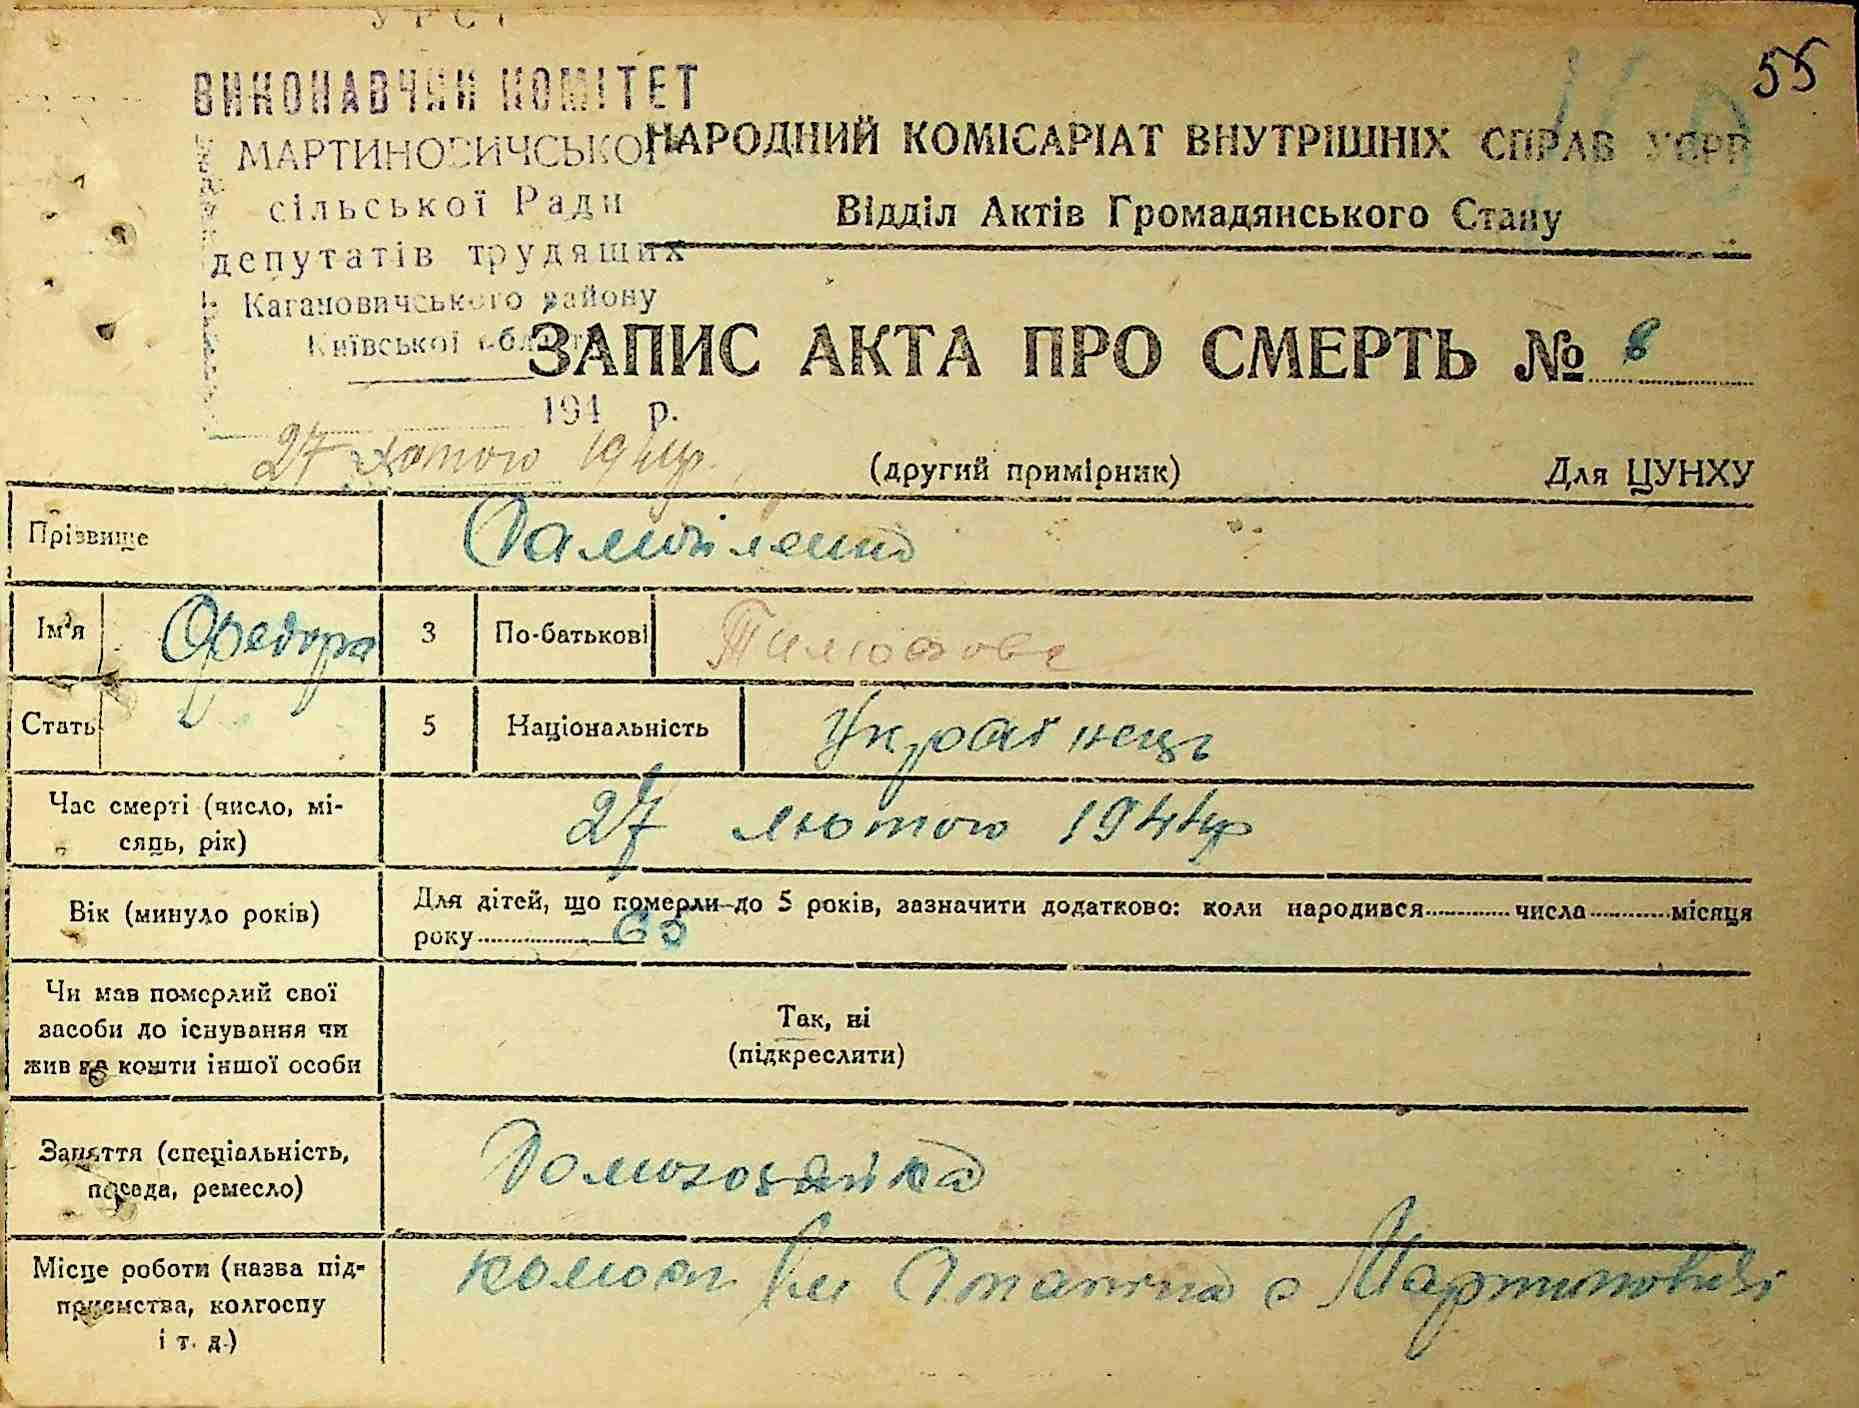 УРСР
ВИКОНАВЧИЙ КОМІТЕТ
МАРТИНОВИЧСЬКОЇ
сільської Ради
депутатів трудящих
Кагановичського району
Київської області
194 р.
27 лютого 1944р.
55
НАРОДНИЙ КОМІСАРІАТ ВНУТРІШНІХ СПРАВ УСРР
Відділ Актів Громадянського Стану
ЗАПИС АКТА ПРО СМЕРТЬ № 8
(другий примірник) Для ЦУНХУ
Прізвище
Ім'я Федора 3 По-батькові
Стать 5 Національність Українець
Час смерті (число, мі-
сяць, рік) 27 лютого 1944р
Вік (минуло років) Для дітей, що померли до 5 років, зазначити додатково: коли народився числа місяця
року 65
Чи мав померлий свої
засоби до існування чи
жив на кошти іншої особи
Так, ні
(підкреслити)
Заняття (спеціальність,
посада, ремесло) Домохозяйка
Місце роботи (назва під-
приємства, колгоспу
і т. д.)
колгосп Ім Сталіна с Мартиновичі